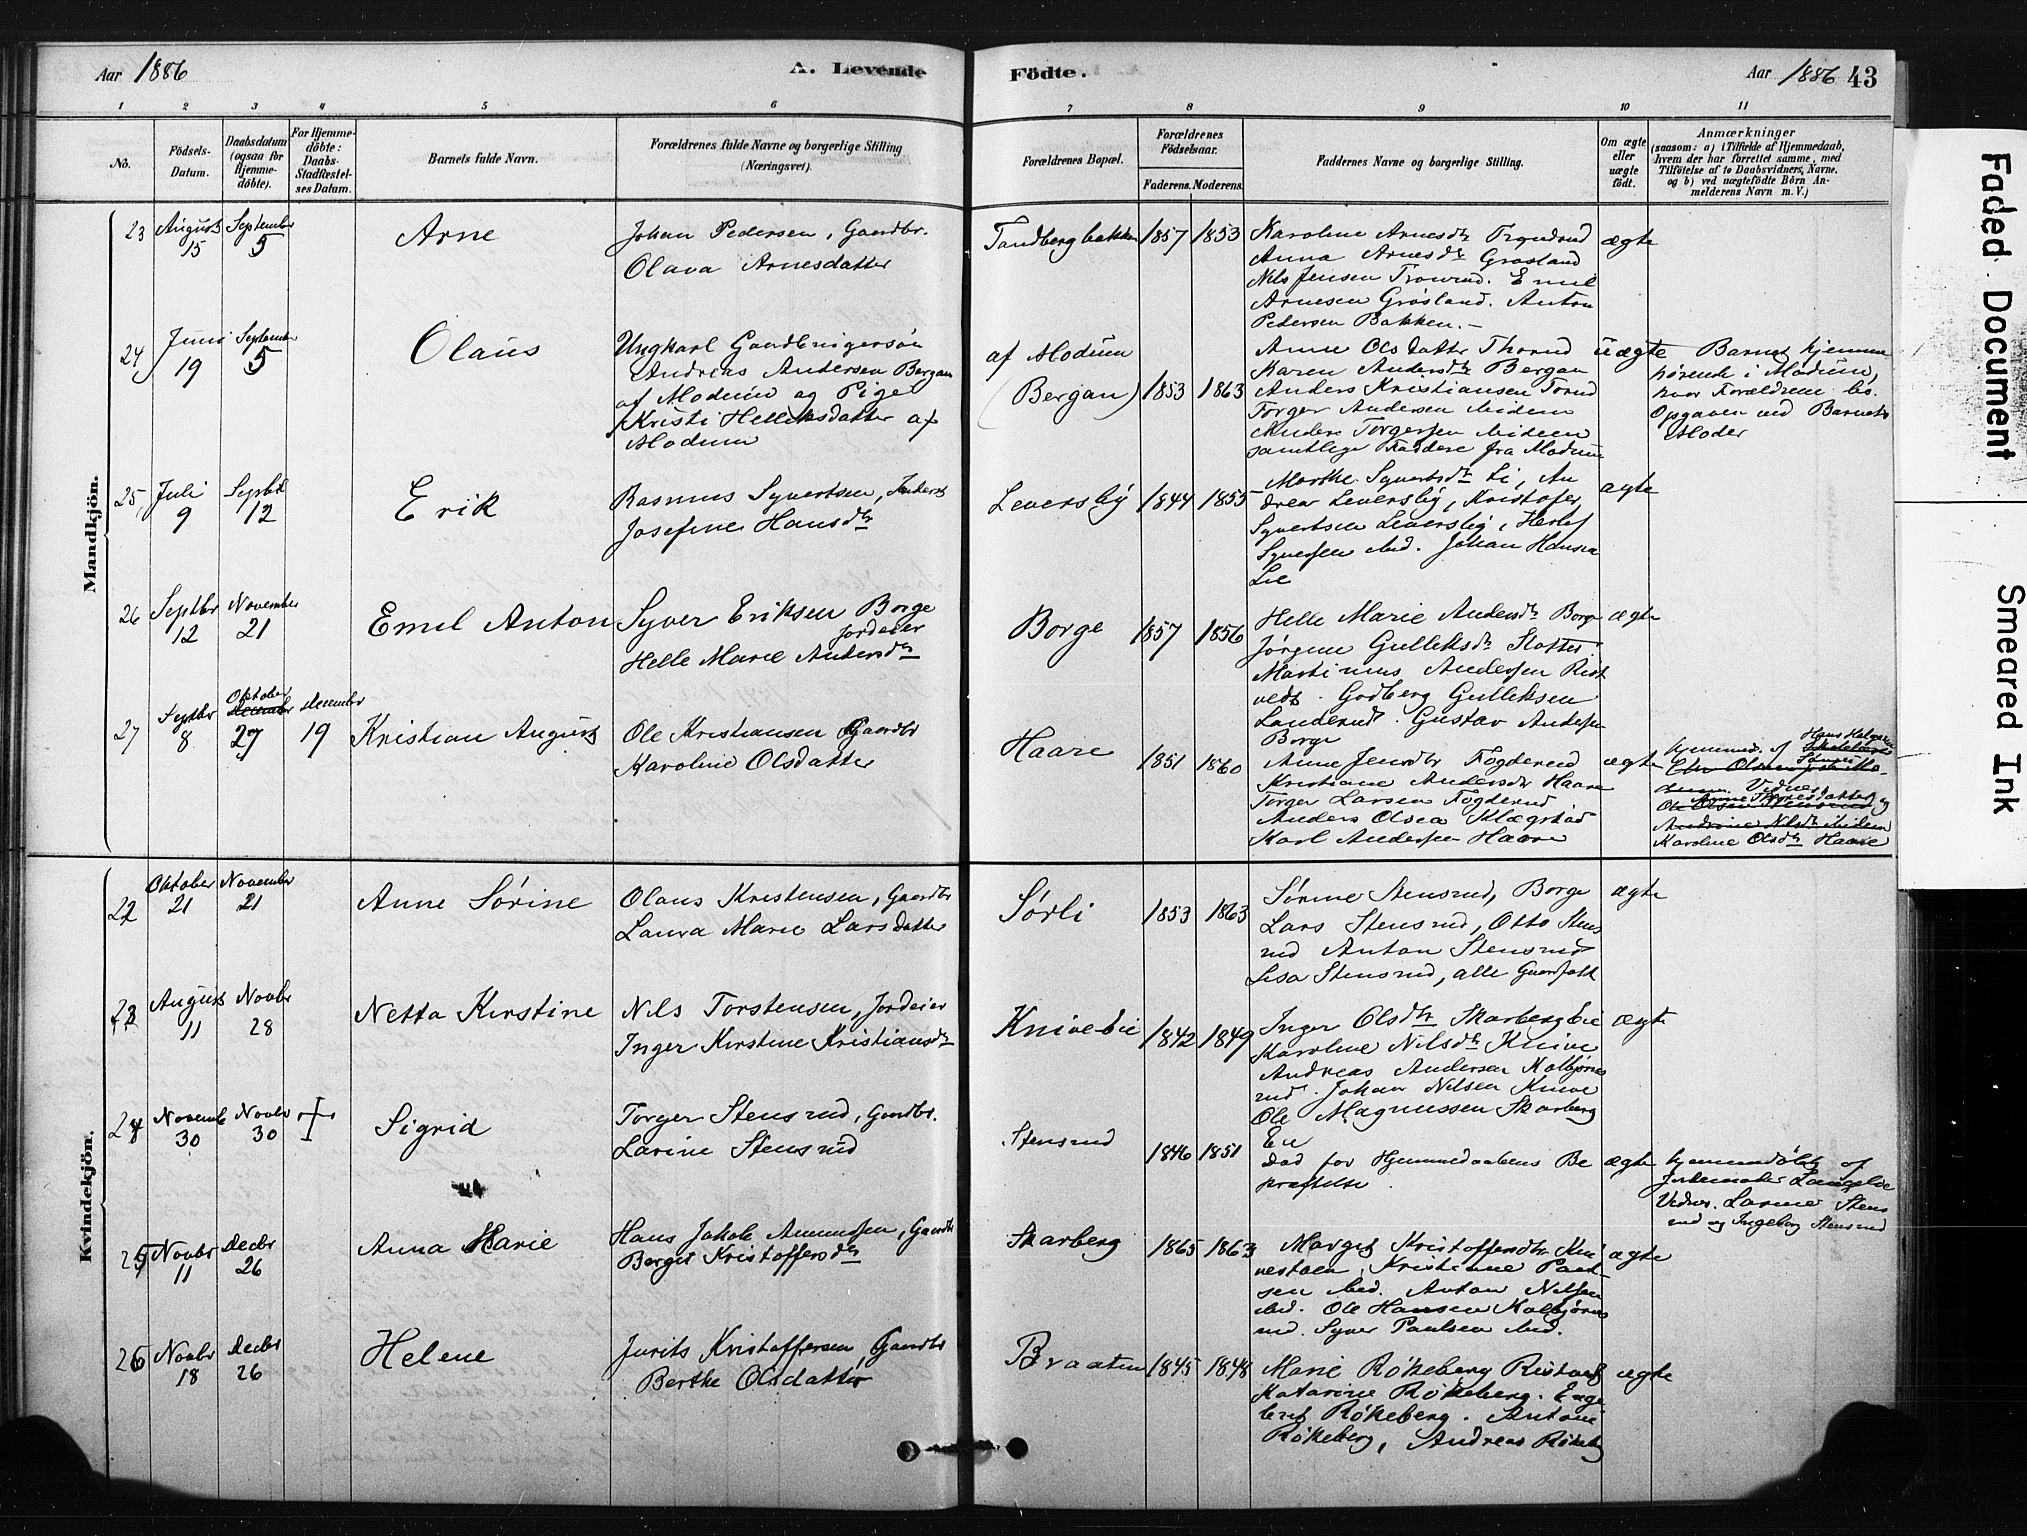 Aar 1886
A. Levende
Födte.
Aar 1886 43
1 2 3 4 5 6 7 8 9 10 11
No.
Födsels-
Datum.
Daabsdatum
(ogsaa for
Hjemme-
döbte).
For Hjemme-
döbte:
Daabs-
Stadfæstel-
ses Datum.
Barnets fulde Navn.
Forældrenes fulde Navne og borgerlige Stilling
(Næringsvei).
Forældrenes Bopæl.
Forældrenes
Födselsaar.
Faderens. Moderens.
Faddernes Navne og borgerlige Stilling.
Om ægte
eller
uægte
födt.
Anmærkninger
(saasom: a) i Tilfælde af Hjemmedaab,
hvem der har forrettet samme, med
Tilföielse af to Daabsvidners, Navne.
og b) ved uægtefödte Börn An-
melderens Navn m. V.)
Mandkjön.
23 August 15 September 5
Arne
Johan Pedersen, Gaardbr.
Olava Arnesdatter
Tandbergbakken 1857 1853
Karoline Arnesdtr
Anna Arnesdtr Grøsland
Nils Jensen Tronrud. Emil
Arnesen Grøsland. Anton
Pedersen Bakken.
ægte
24 Juni 19 September 5
Olaus
Ungkarl Gaardbrugersøn
Andreas Andersen Bergan
af Modum og Pige
Kristi Helleksdatter af
Modum
af Modum
(Bergan) 1853 1863
Anne Olsdatter Thorud
Karen Andersdtr Bergan
Anders Kristiansen Torud
Torger Andersen
Anders Torgersen
samtlige Faddere fra Modum
uægte
Barnet hjemme
hørende i Modum,
hvor Forældrene bo.
Opgaven ved Barnets
Moder
25, Juli 9 Septbr 12
Erik
Rasmus Syvertsen,
Josefine Hansdtr
Leversby 1844 1855
Marthe Syvertsdtr Li, An
drea Leversby, Kristofer
Syvertsen Leversby,
Johan Hansen
Lie
ægte
26 Septbr 12 November 21
Emil Anton
Syver Eriksen Borge
Jordeier
Helle Marie Andersdtr
Borge 1857 1856
Helle Marie Andersdtr Borge
Jørgine Gulleksdtr
Martinus Andersen Rist
vedt. Godberg Gulleksen
Landerud. Gustav Andersen
Borge
ægte
27 Septbr 8 Oktober 27 December 19
Kristian August
Ole Kristiansen Gaardbr
Karoline Olsdatter
Haare 1851 1860
Anne Jensdtr Fogderud
Kristiane Andersdtr Haare
Torger Larsen Fogderud
Anders Olsen Klægstad
Karl Andersen Haare
ægte
hjemmed. af
Karoline Olsdtr Haare
Kvindekjön.
22 Oktober 21 November 21
Anne Sørine
Olaus Kristensen, Gaardbr
Laura Marie Larsdatter
Sørli 1853 1863
Sørine Stensrud, Borge
Lars Stensrud, Otto Stens
rud Anton Stensrud
Lisa Stensrud, alle Gaardfolk
ægte
23 August 11 Novbr 28
Netta Kirstine
Nils Torstensen, Jordeier
Inger Kirstine Kristiansdtr
Knivebie 1842 1849
Inger Olsdtr Skarbergbie
Karoline Nilsdtr Knive
Andreas Andersen Kolbjørns
rud. Johan Nilsen Knive
Ole Magnussen Skarberg
ægte
24 Novemb 30 Novbr 30
Sigrid
Torger Stensrud, Gaardbr.
Larine Stensrud
Stensrud 1846 1851
En
Død før Hjemmedaabens Be
kræftelse.
ægte
hjemmedøbt af
Jordemoder
Vidner. Larine Stens
rud og Ingeborg Stensrud
25 Novbr 11 Decbr 26
Anna Marie
Hans Jakob Amundsen, Gaardbr
Berget Kristoffersdtr
Skarberg 1865 1863
Marget Kristoffersdtr Kni
vestøen, Kristianne Paul-
sen ibid. Anton Nilsen
ibid. Ole Hansen Kolbjørns
rud. Syver Paulsen ibid.
ægte
26 Novbr 18 Decbr 26
Helene
Jurits Kristoffersen, Gaardbr
Berthe Olsdatter
Braaten 1845 1848
Marie Røkeberg
Katarine Røkeberg. Enge
bret Røkeberg. Anton
Røkeberg, Andreas Røkeberg
ægte
Faded Document
Smeared Ink